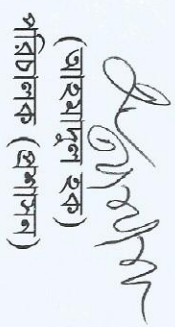 (আহমাদুল হক)
পরিচালক (প্রশাসন)